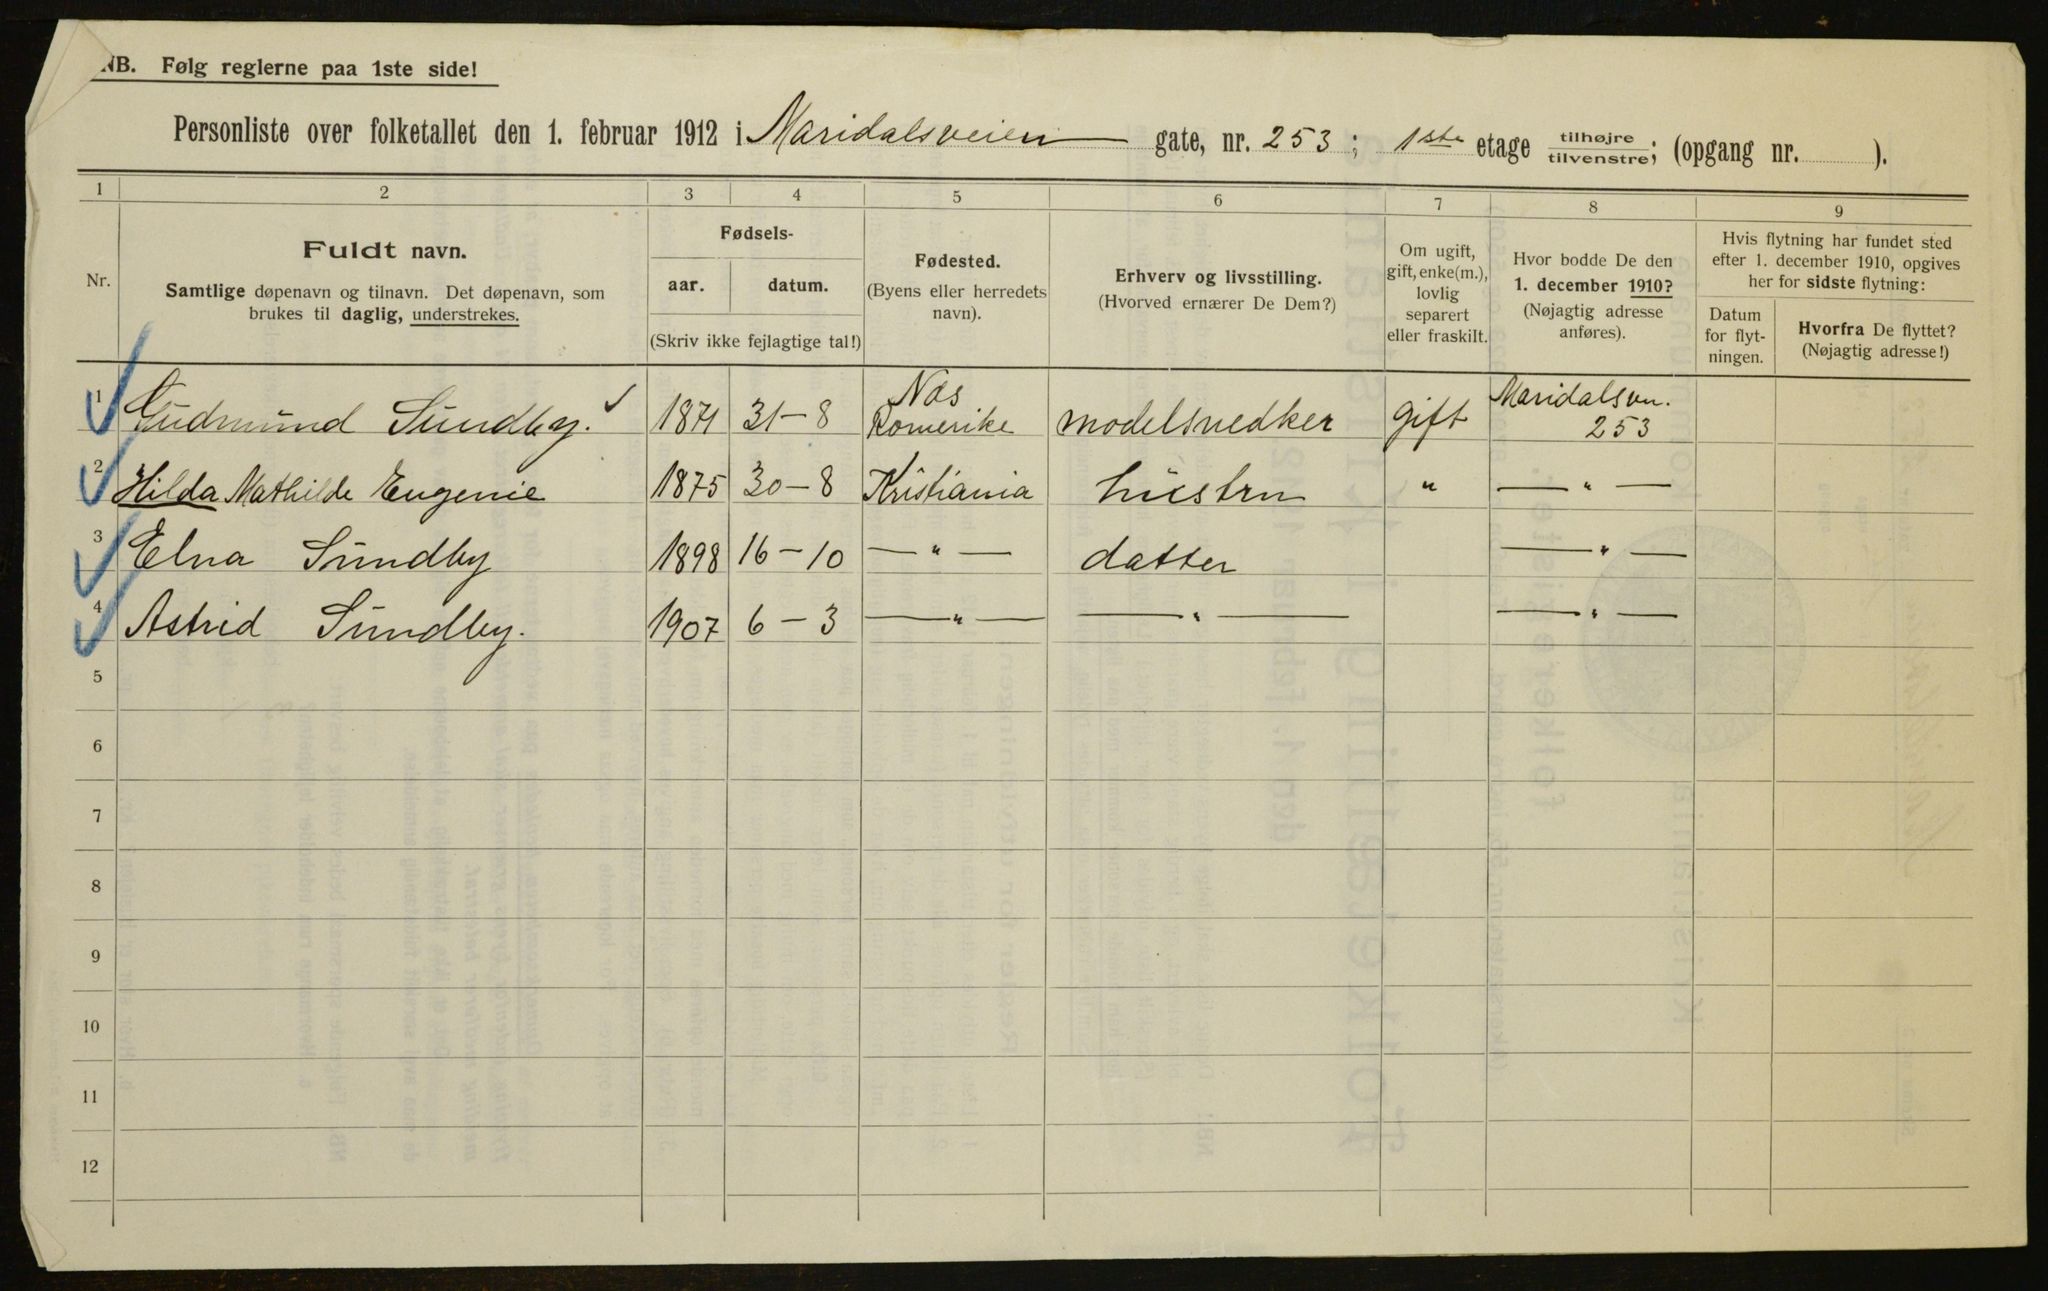 NB. Følg reglerne paa 1ste side!
Personliste over folketallet den 1. februar 1912 i Maridalsveien gate, nr. 253; 1ste etage tilhøjre / tilvenstre; (opgang nr. ).
1 2 3 4 5 6 7 8 9
Nr.
Fuldt navn.
Samtlige døpenavn og tilnavn. Det døpenavn, som
brukes til daglig, understrekes.
Fødsels-
aar. datum.
(Skriv ikke fejlagtige tal!)
Fødested.
(Byens eller herredets
navn).
Erhverv og livsstilling.
(Hvorved ernærer De Dem?)
Om ugift,
gift, enke(m.),
lovlig
separert
eller fraskilt.
Hvor bodde De den
1. december 1910?
(Nøjagtig adresse
anføres).
Hvis flytning har fundet sted
efter 1. december 1910, opgives
her for sidste flytning:
Datum
for flyt-
ningen.
Hvorfra De flyttet?
(Nøjagtig adresse!)
1 Gudmund Sundby. 1871 31-8 Nes Romerike modelsnedker gift Maridalsvn. 253
2 Hilda Mathilde Eugenie 1875 30-8 Kristiania hustru " — " —
3 Elna Sundby 1898 16-10 — " — datter — " —
4 Astrid Sundby. 1907 6-3 — " — — " — — " —
5
6
7
8
9
10
11
12